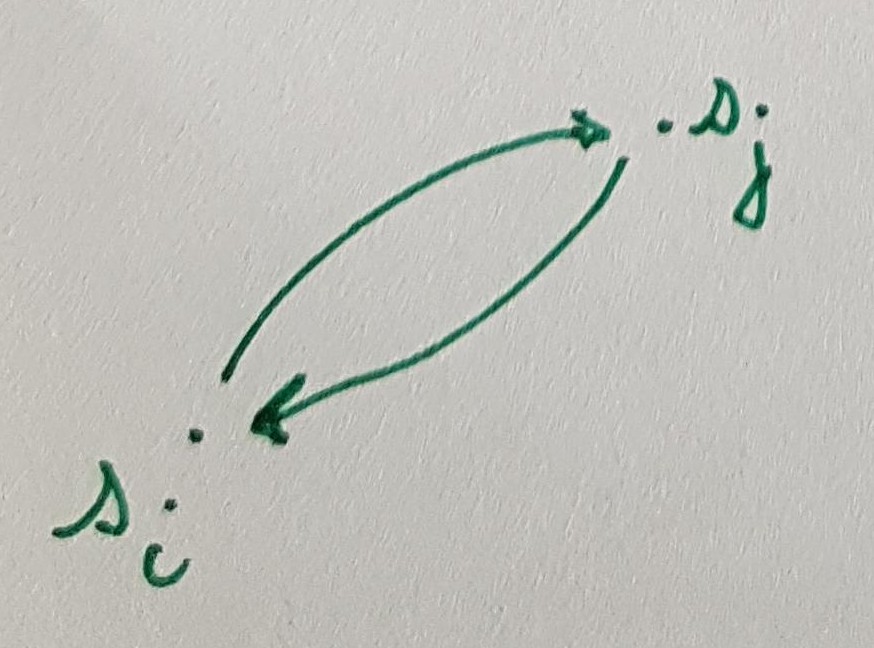 s_j
s_i